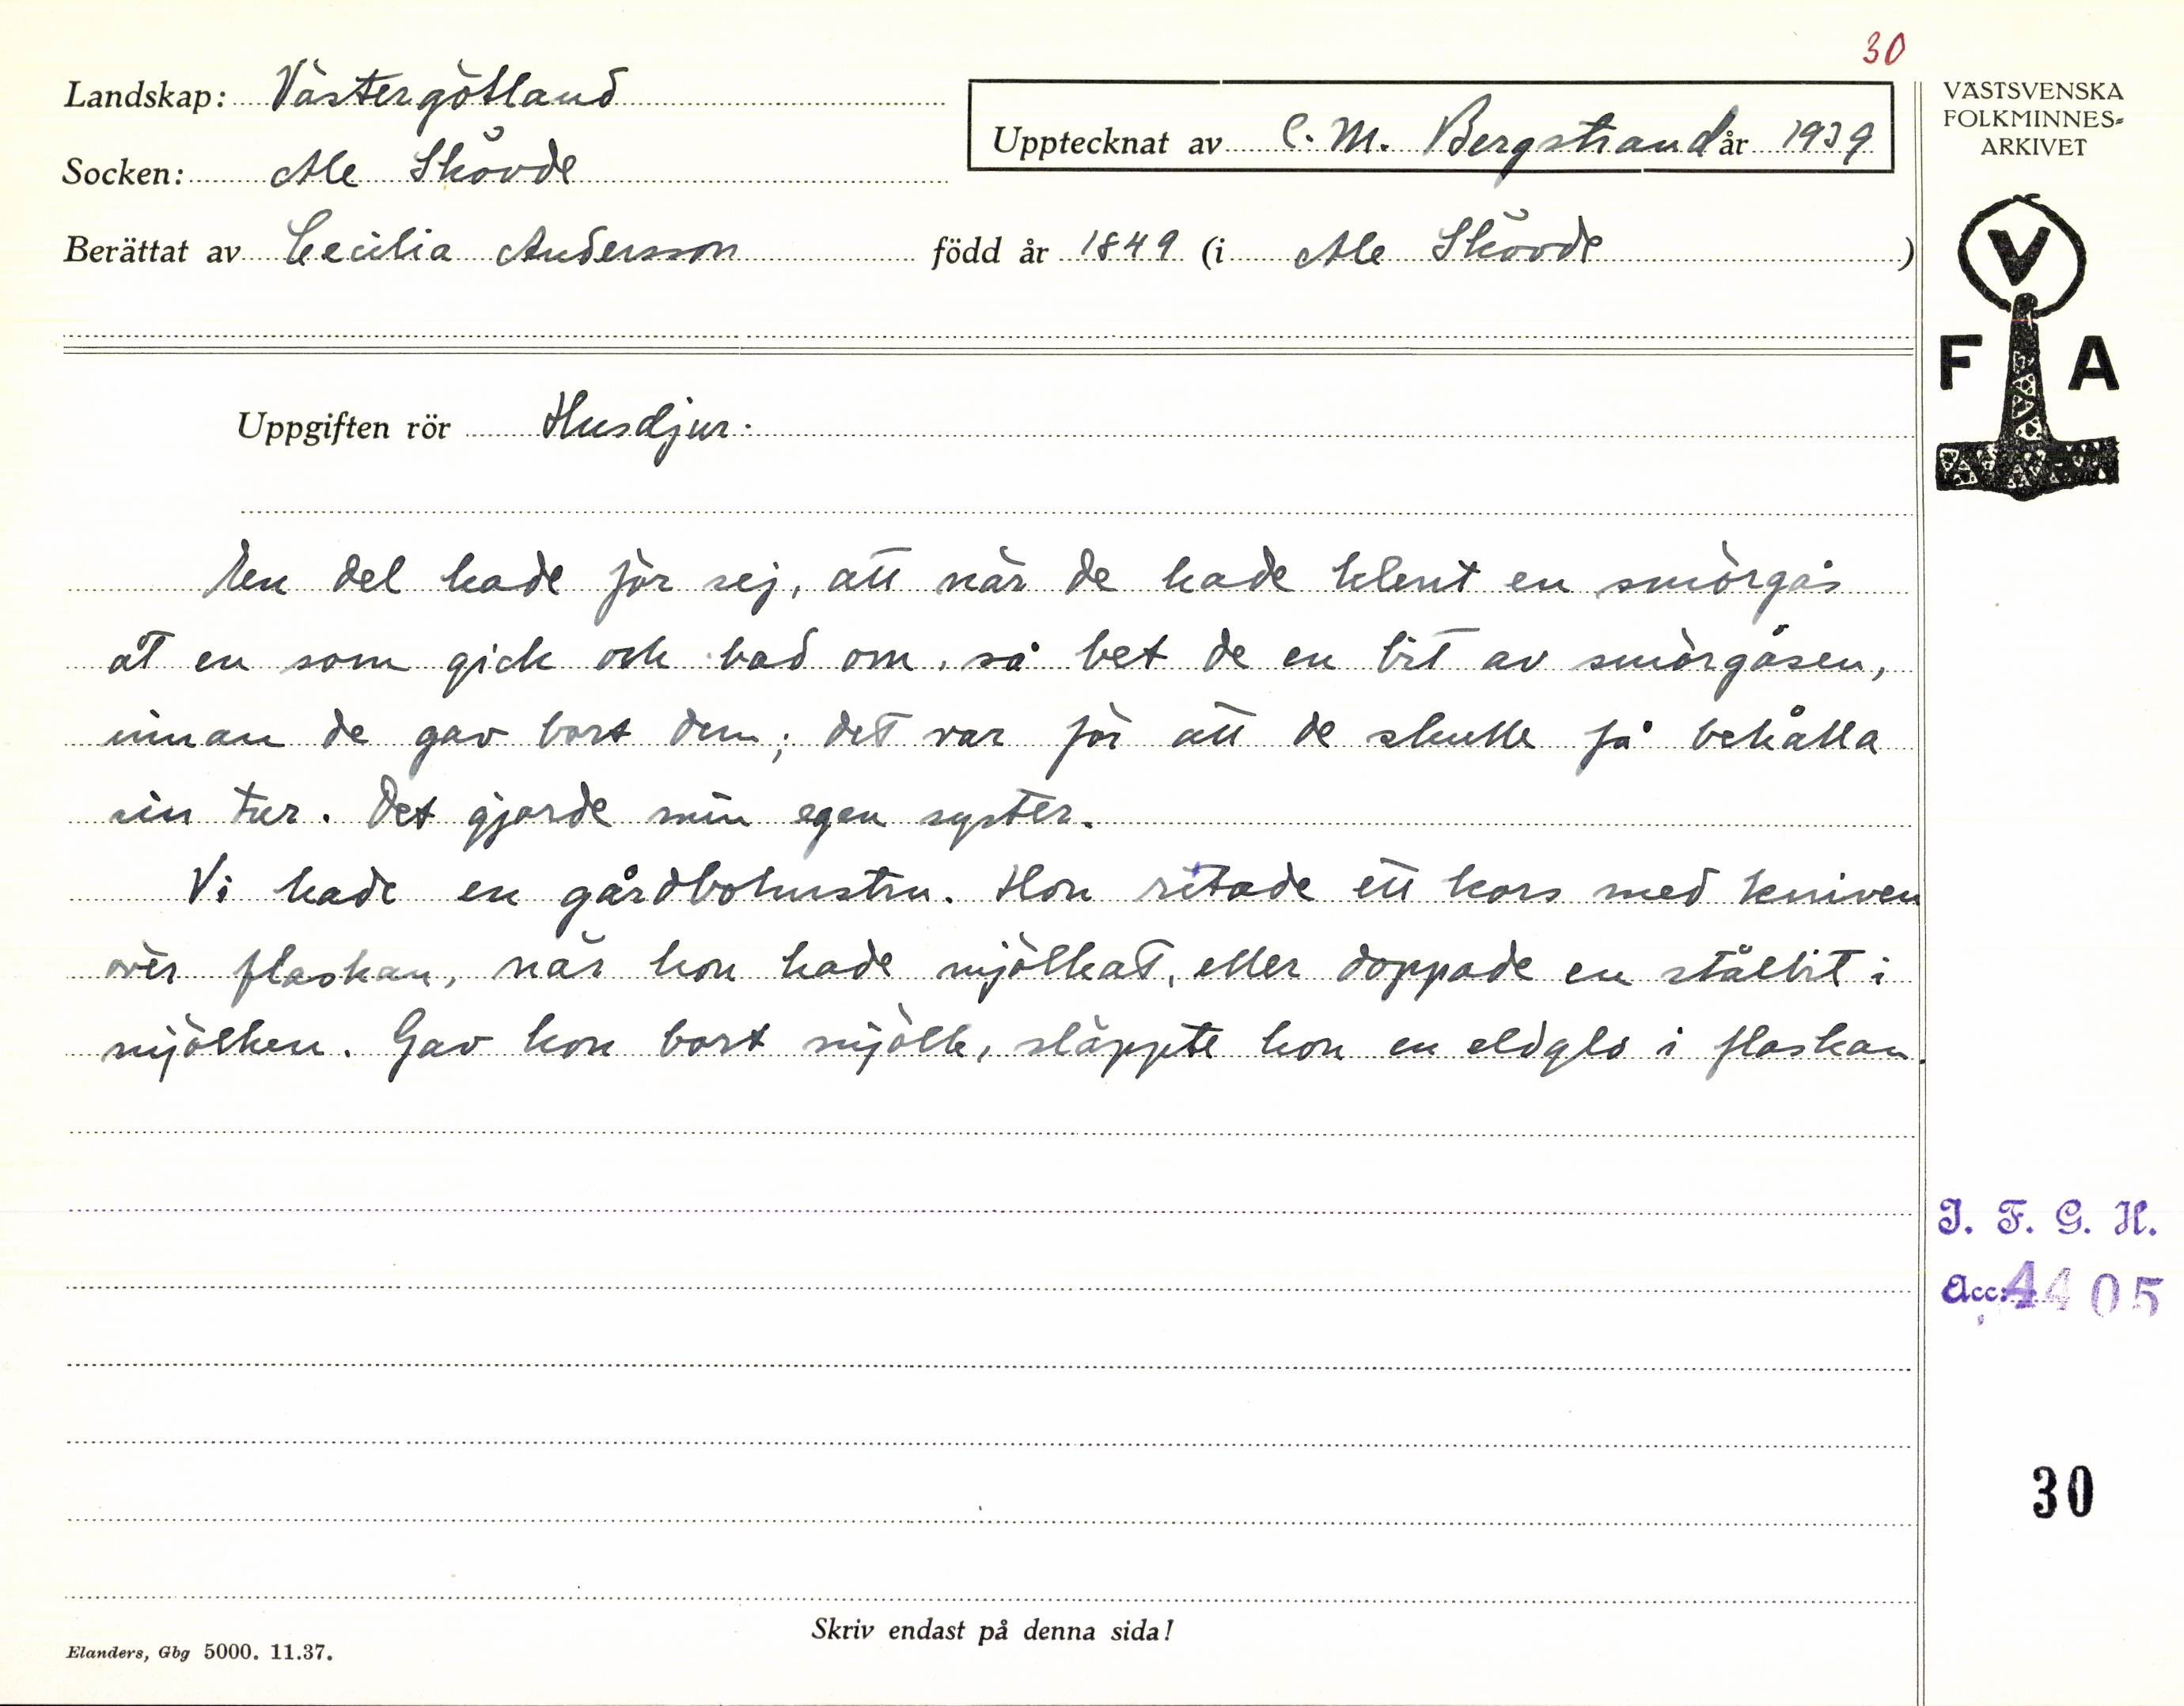 30
Landskap: Västergötland
Upptecknat av C. M. Bergstrand år 1939
Socken: Ale Skövde
Berättat av Cecilia Andersson född år 1849 (i Ale Skövde )
VÄSTSVENSKA
FOLKMINNES=
ARKIVET
V
F A
Uppgiften rör Husdjur.
En del hade för sej, att när de hade klent en smörgås
åt en som gick och bad om, så bet de en bit av smörgåsen,
innan de gav bort dem; det var för att de skulle få behålla
sin tur. Det gjorde min egen syster.
Vi hade en gårdbohustru. Hon ritade ett kors med kniven
över flaskan, när hon hade mjölkat, eller doppade en stålbit i
mjölken. Gav hon bort mjölk, släppte hon en eldglo i flaskan.
I. F. G. H.
Acc: 4405
30
Skriv endast på denna sida!
Elanders, Gbg 5000. 11.37.